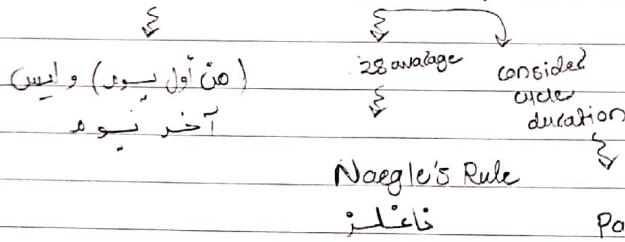 (من أول يوم) وليس
آخر يوم
28 avarage
consider
cycle
duration
Naegle's Rule
ناغلز
Pa